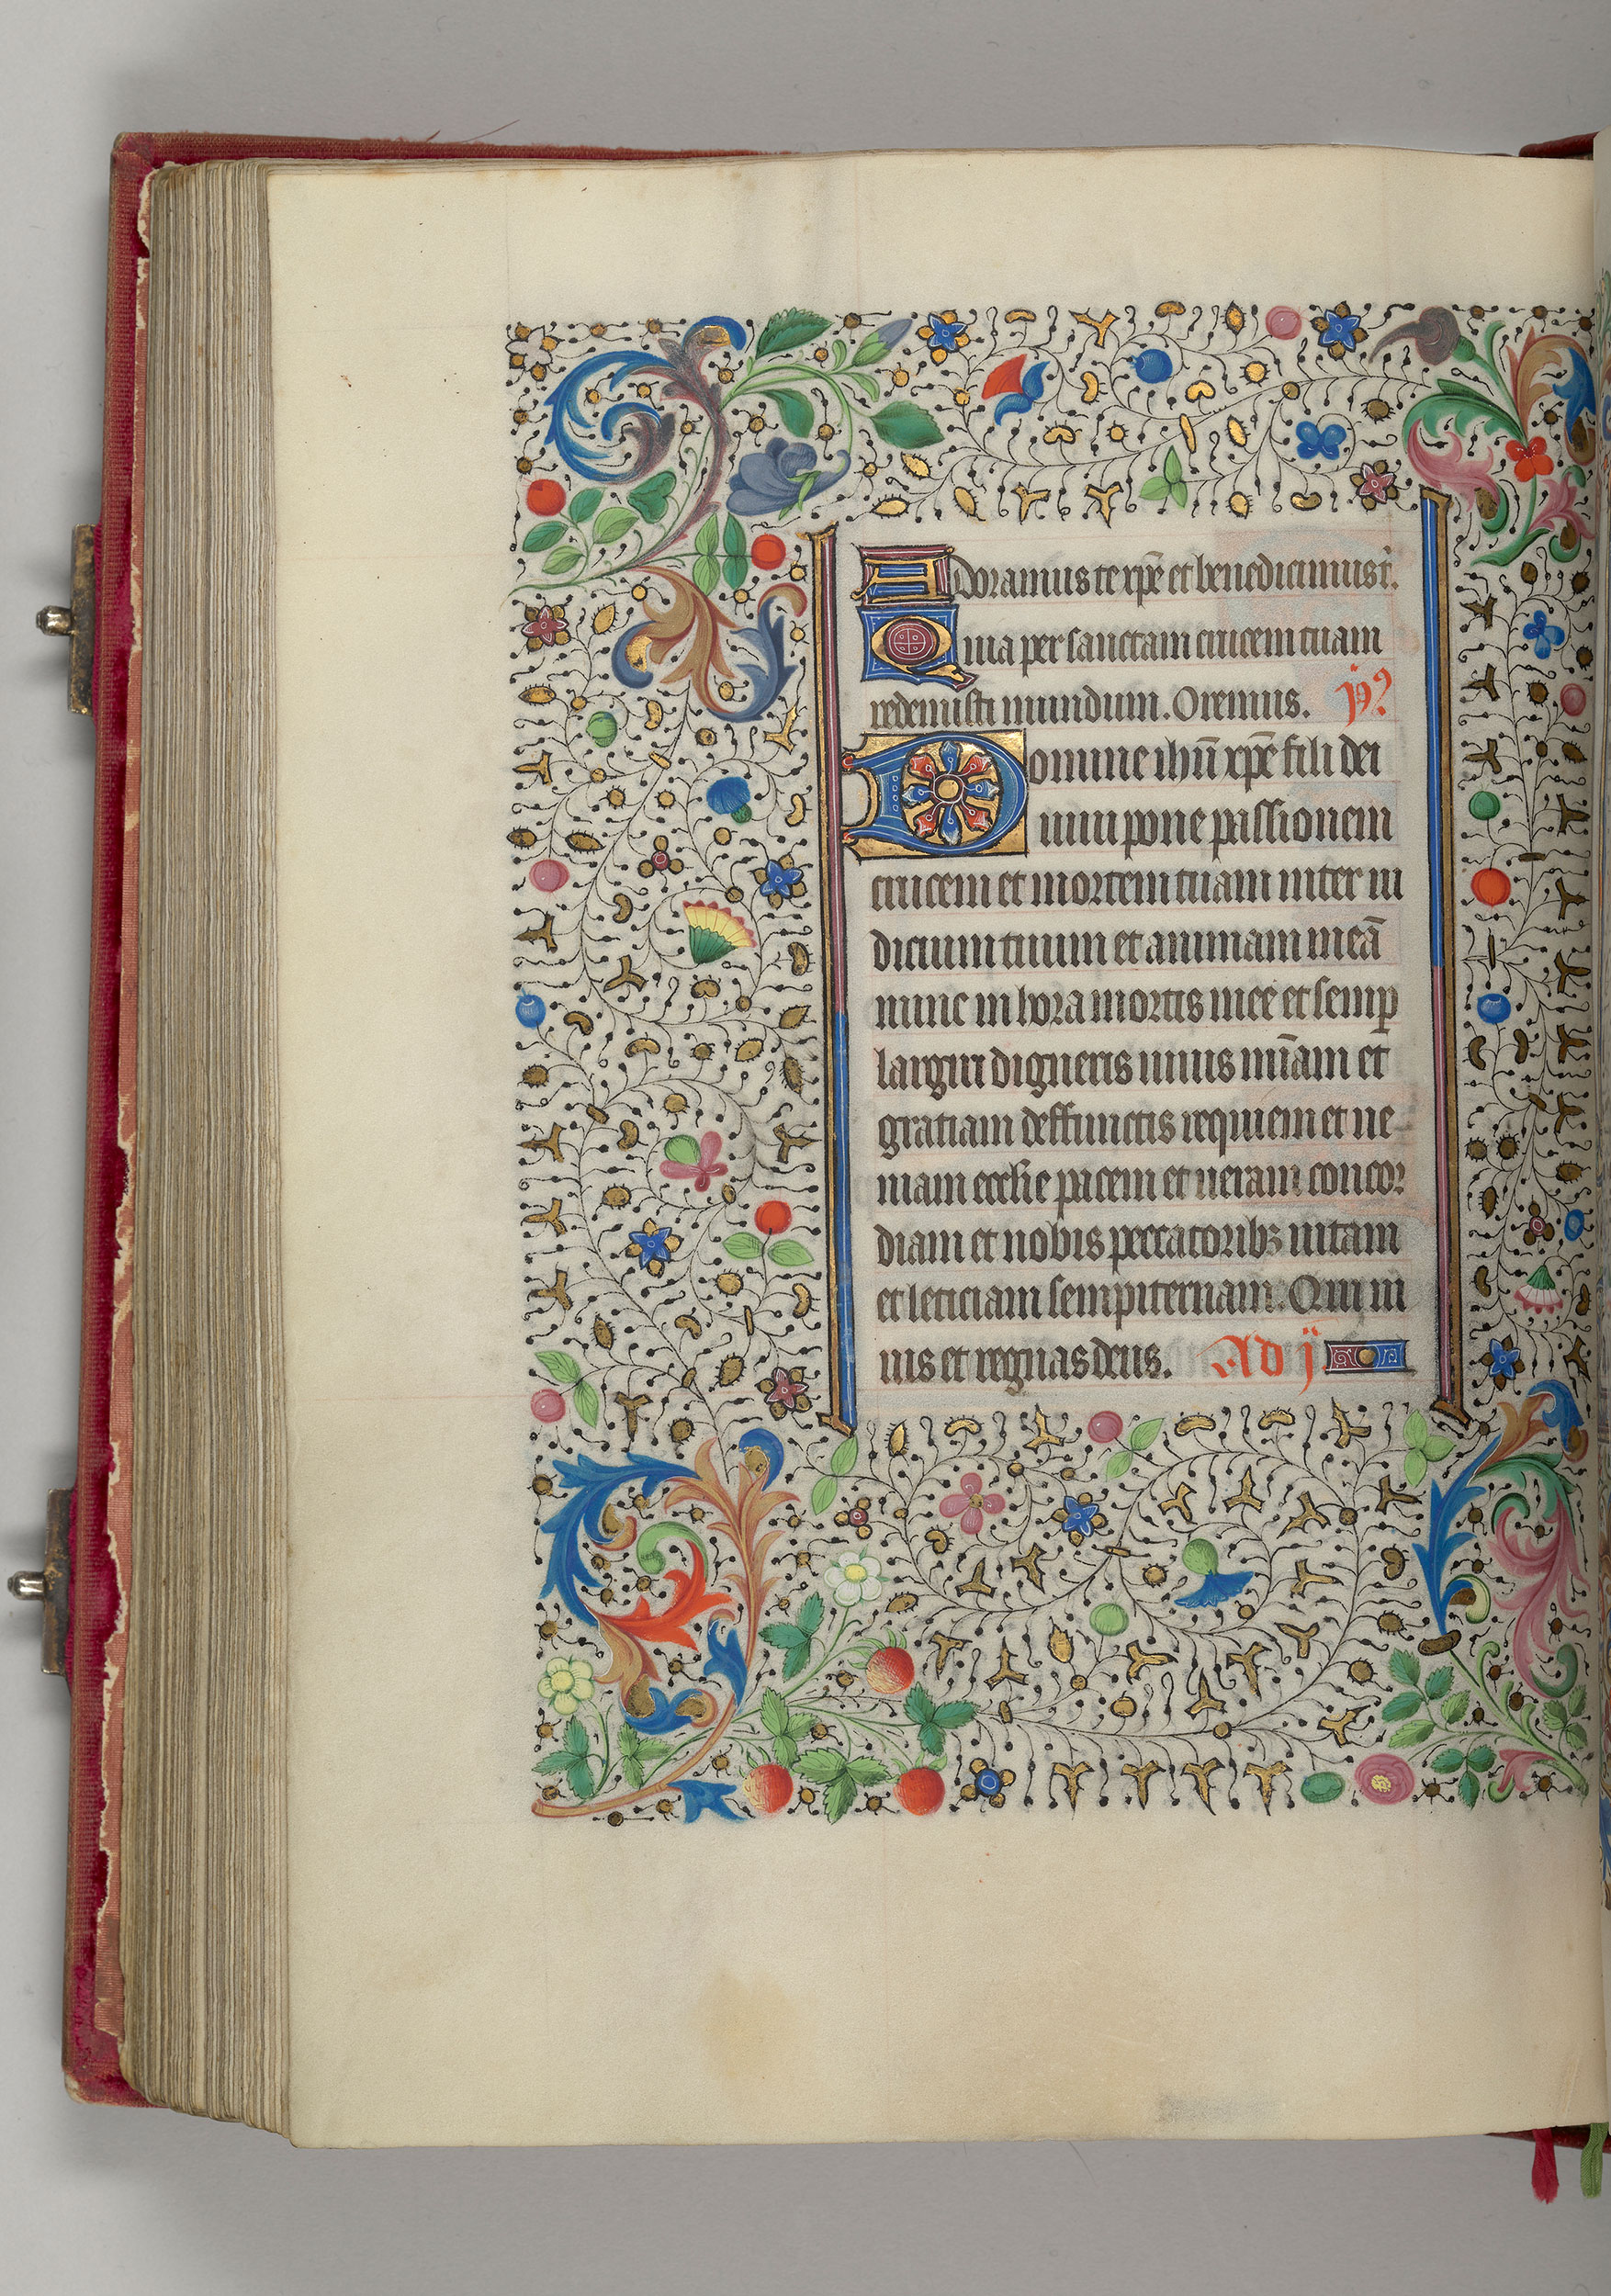 Adoramus te xp̄e et benedicimus t̄.
Quia per sanctam crucem tuam
redemisti mundum. Oremus.
Domine ihū xp̄e fili dei
uiui pone passionem
crucem et mortem tuam inter iu
dicium tuum et animam meā
nunc in hora mortis mee et semp̱
largiri digneris uiuis mīam et
gratiam deffunctis requiem et ue-
niam ecclīe pacem et ueram concor
diam et nobis peccatoribꝫ uitam
et leticiam sempiternam. Qui ui
uis et regnas deus. Ad ij